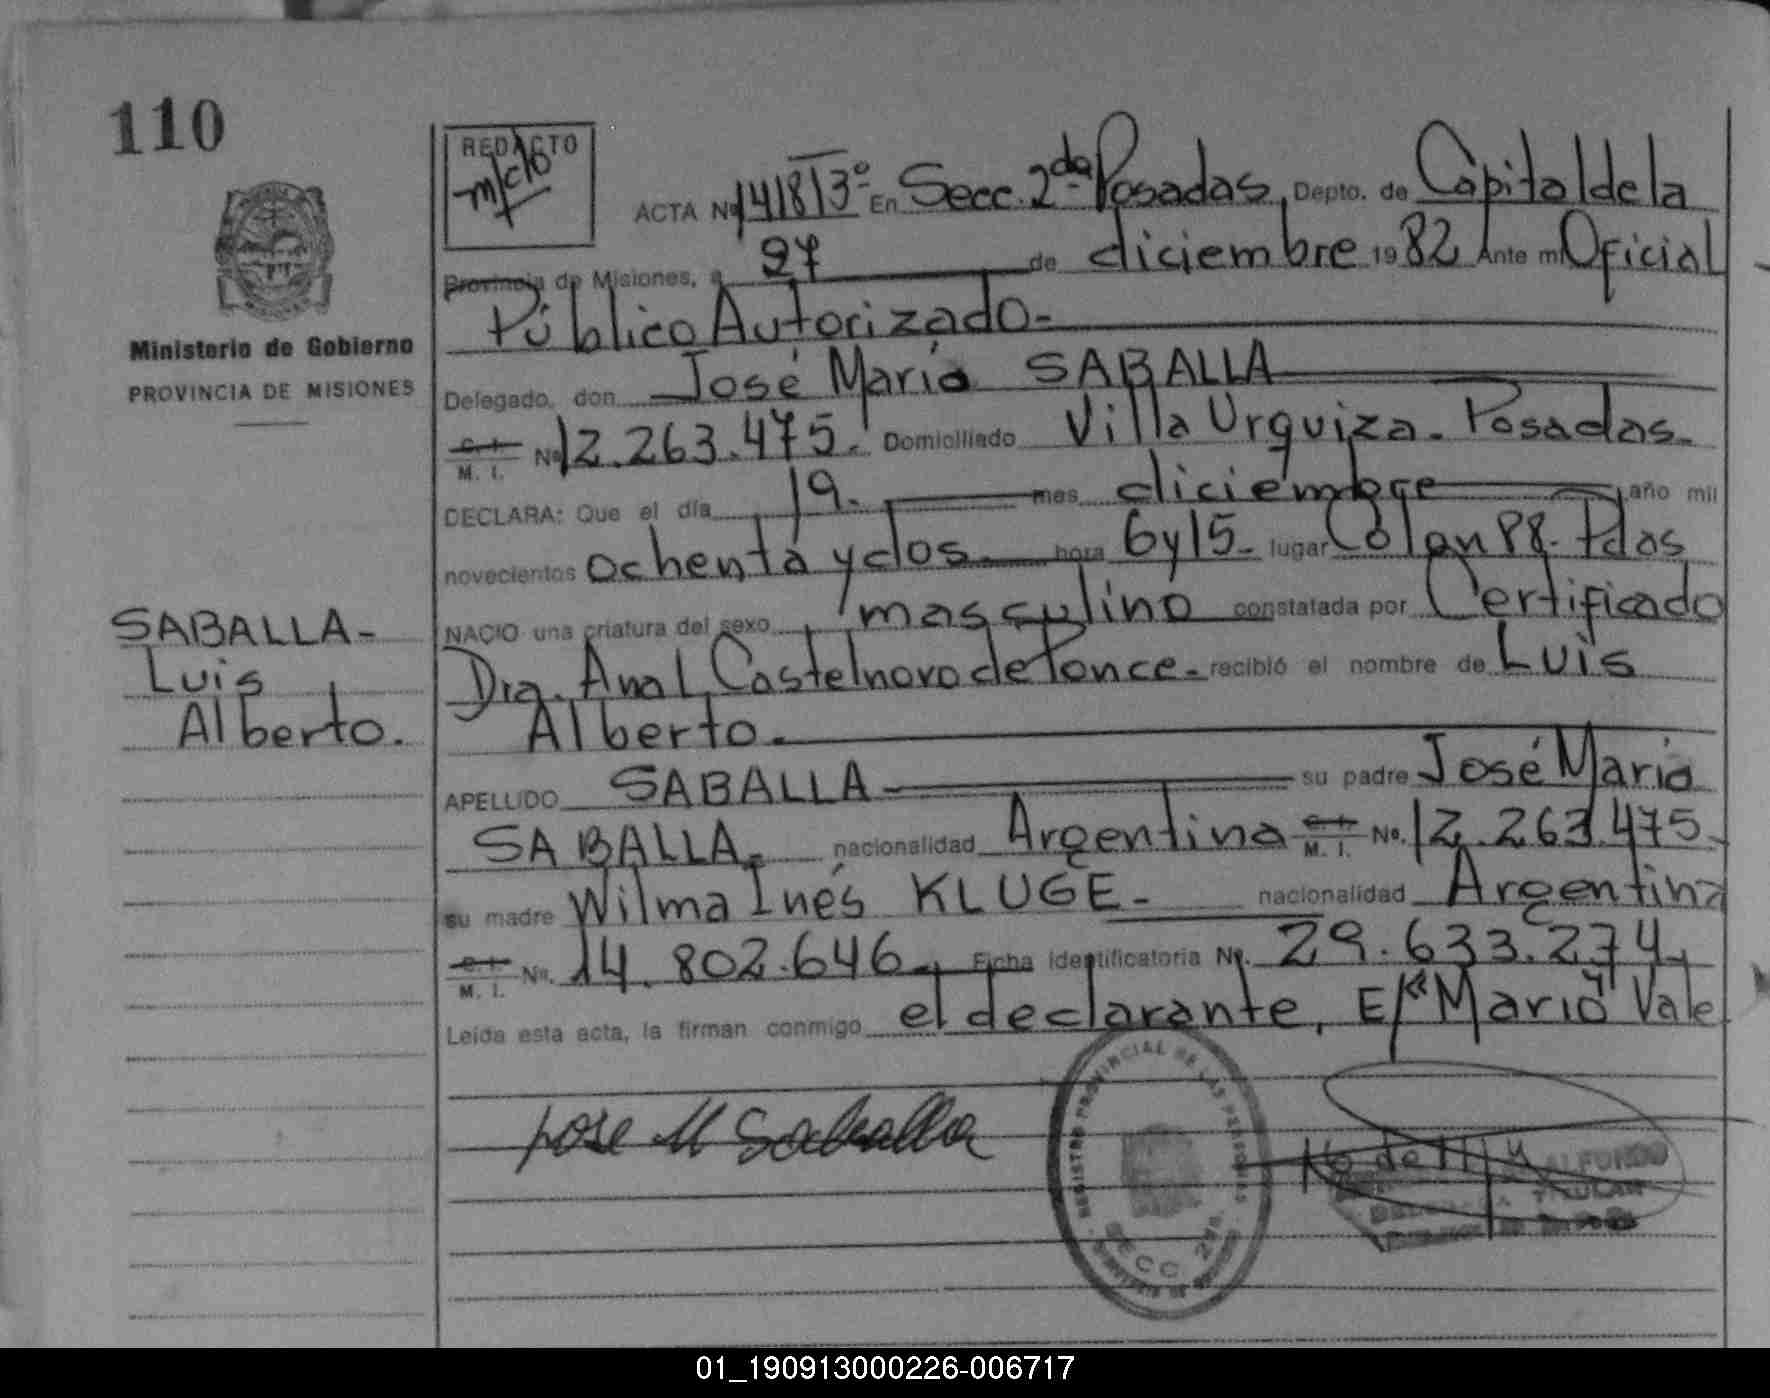 110
REDACTO
ACTA Nº 141813º En Secc. 2da Posadas, Depto. de Capital de la
Provincia de Misiones, a 27 de diciembre 1982 Ante mi Oficial
Público Autorizado-
Ministerio de Gobierno
PROVINCIA DE MISIONES
Delegado, don José María SABALLA
C. I. M. I. Nº 12.263.475. Domiciliado Villa Urquiza. Posadas.
DECLARA: Que el día 19. mes diciembre año mil
novecientos ochenta y dos. hora 6 y 15- lugar Colon 88. Pdas
NACIO una criatura del sexo masculino constatada por Certificado
Dra. Ana L. Castelnovo de Ponce- recibió el nombre de Luis
Alberto.
SABALLA-
Luis
Alberto.
APELLIDO SABALLA su padre José María
SABALLA. nacionalidad Argentina C. I. M. I. Nº. 12.263.475.
su madre Wilma Inés KLUGE- nacionalidad Argentina
C. I. M. I. Nº. 14.802.646. Ficha identificatoria Nº. 29.633.274.
Leída esta acta, la firman conmigo el declarante, E/" María" Vale
Jose M Saballa
REGISTRO PROVINCIAL DE LAS PERSONAS
SECC 2da.
TITULAR
01_190913000226-006717